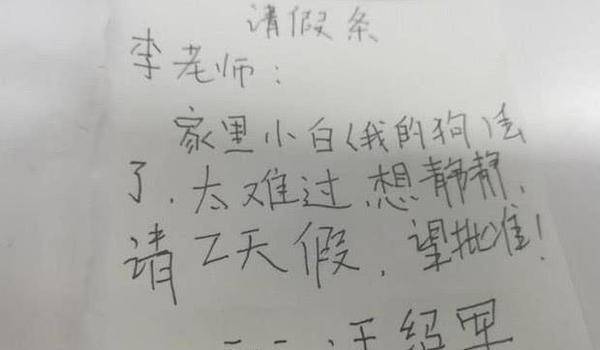 请假条
李老师：
家里小白(我的狗)丢
了.太难过.想静静.
请2天假.望批准！